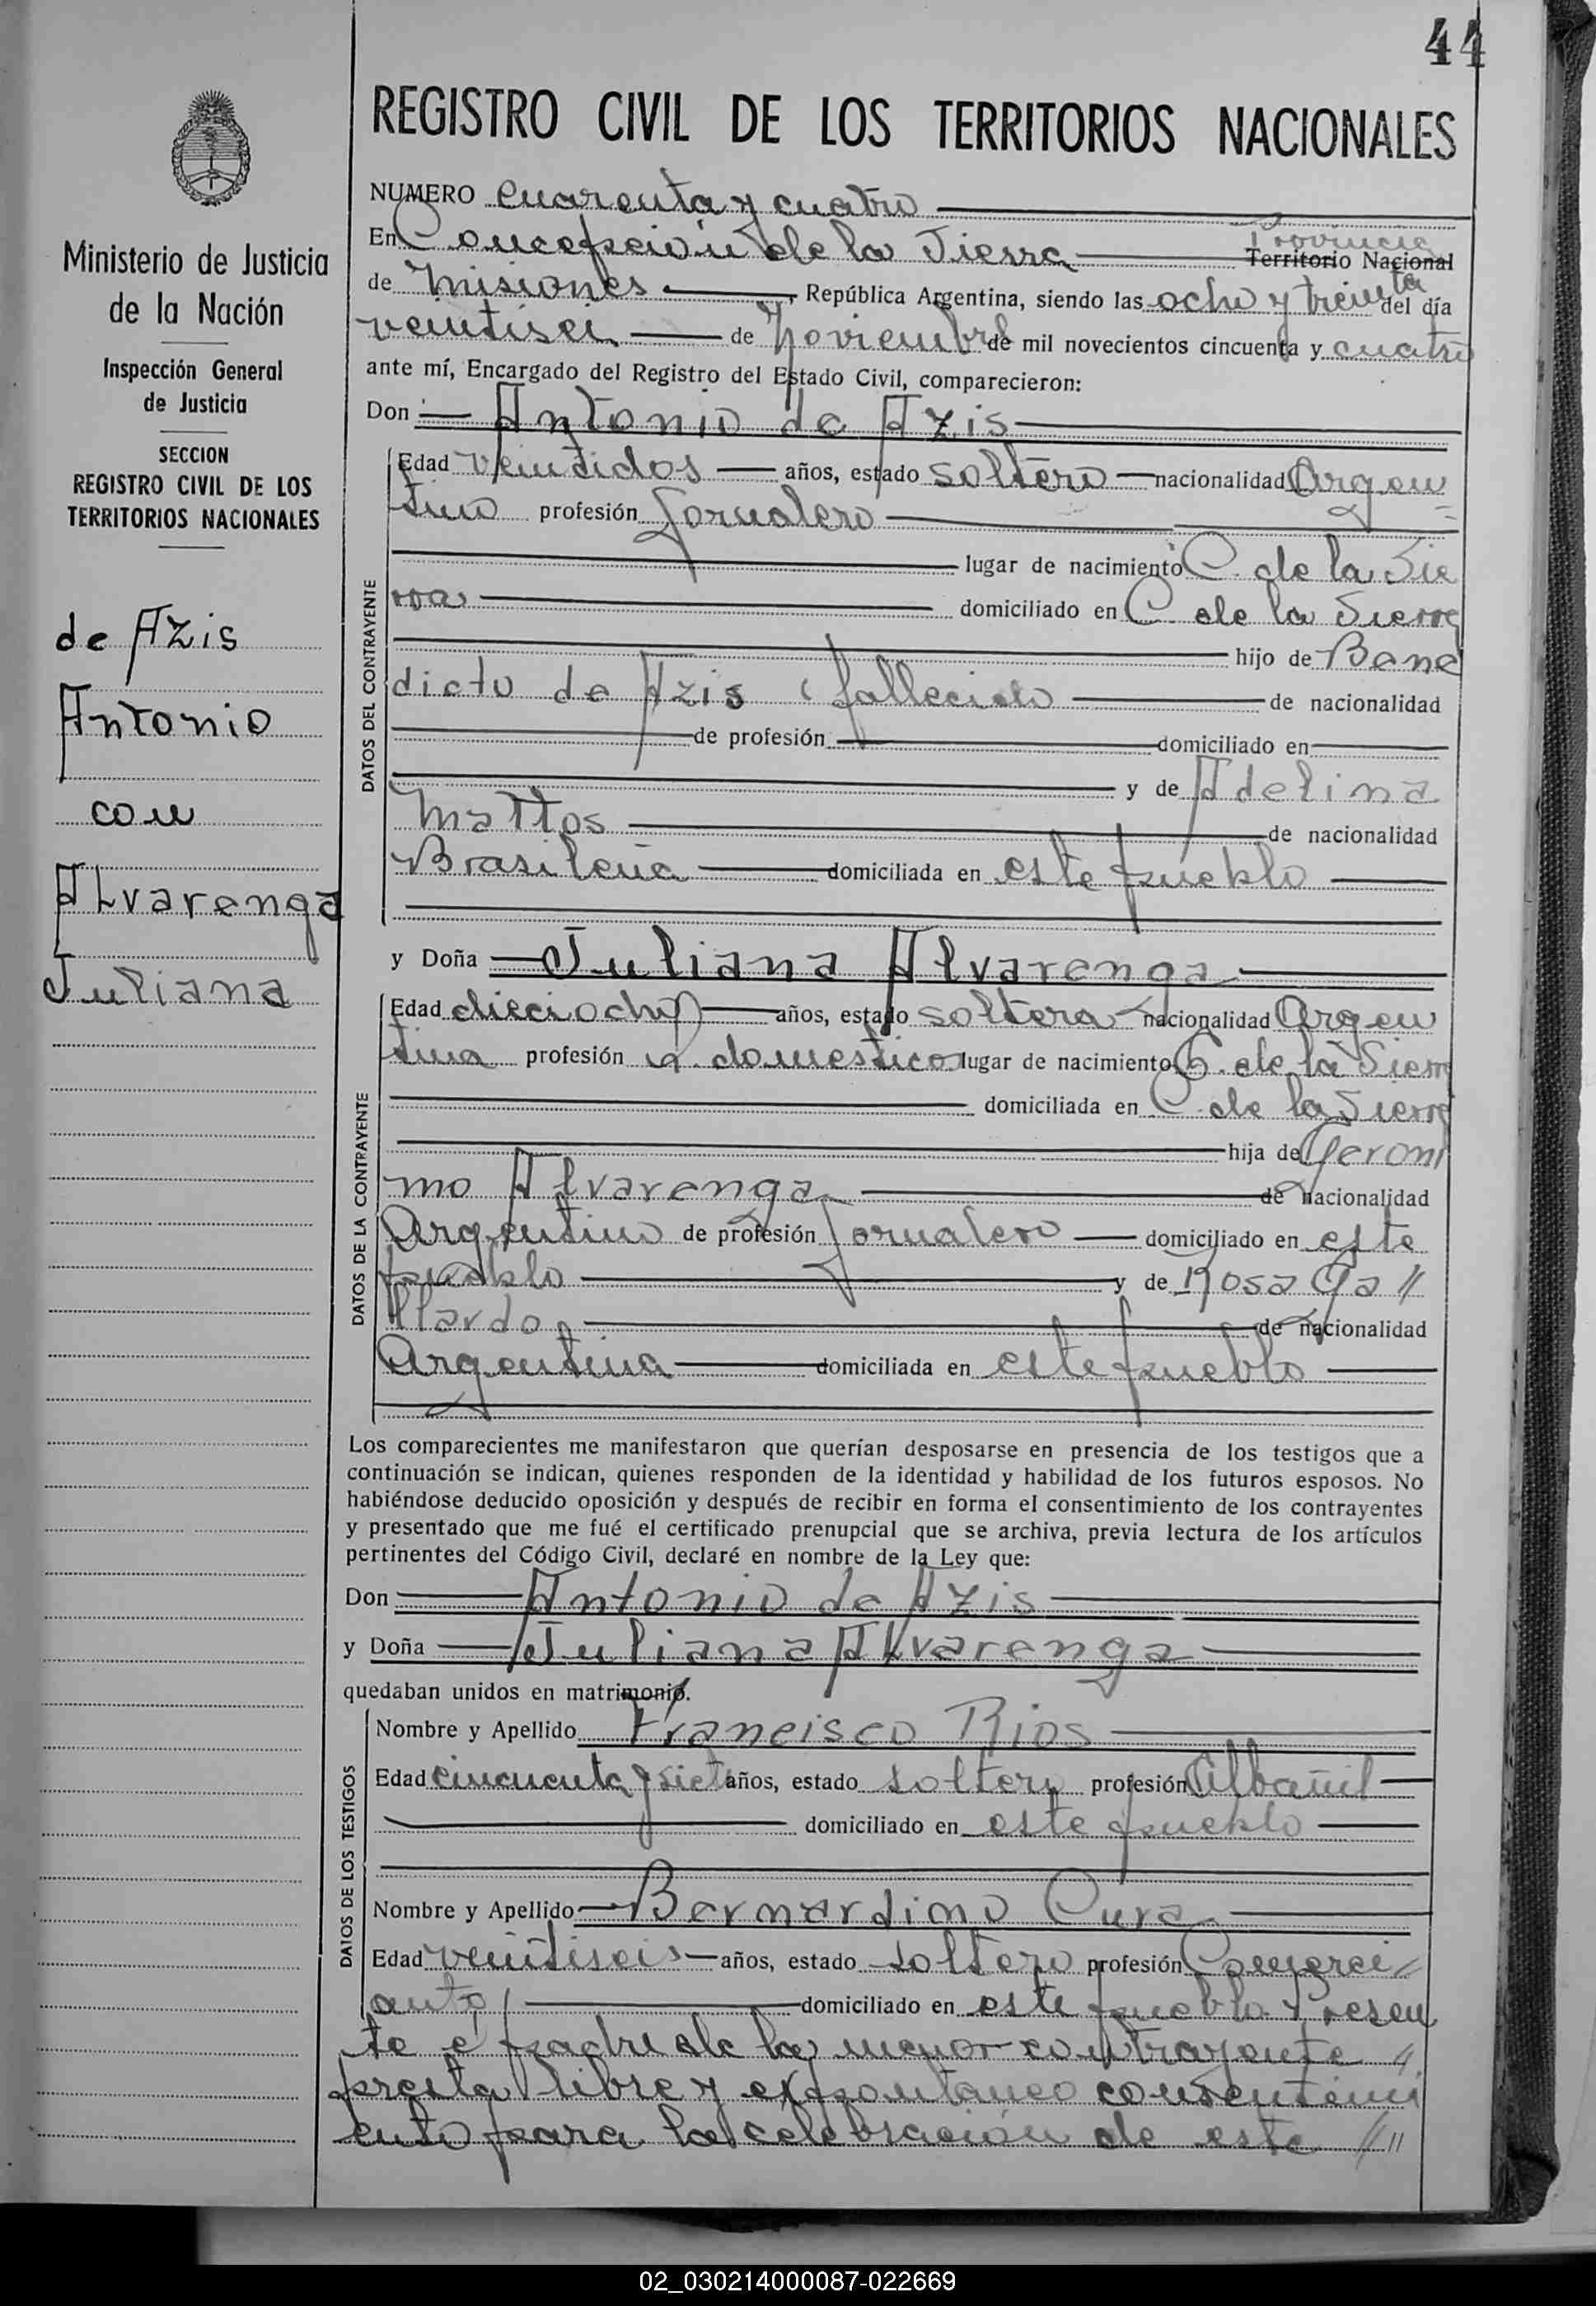 44
REGISTRO CIVIL DE LOS TERRITORIOS NACIONALES
Ministerio de Justicia
de la Nación
Inspección General
de Justicia
SECCION
REGISTRO CIVIL DE LOS
TERRITORIOS NACIONALES
de Azis
Antonio
con
Alvarenga
Juliana
NUMERO cuarenta y cuatro
En Concepción de la Sierra Provincia Territorio Nacional
de Misiones, República Argentina, siendo las ocho y treinta del día
veintiseis de Noviembre de mil novecientos cincuenta y cuatro
ante mí, Encargado del Registro del Estado Civil, comparecieron:
Don Antonio de Azis
DATOS DEL CONTRAYENTE
Edad veintidos años, estado soltero nacionalidad Argen
tino profesión Jornalero
lugar de nacimiento C. de la Sie
rra domiciliado en C. de la Sierra
hijo de Bene
dicto de Azis (fallecido de nacionalidad
de profesión domiciliado en
y de Adelina
Mattos de nacionalidad
Brasileña domiciliada en este pueblo
y Doña Juliana Alvarenga
DATOS DE LA CONTRAYENTE
Edad dieciocho años, estado soltera nacionalidad Argen
tina profesión q. domesticos lugar de nacimiento C. de la Sierra
domiciliada en C. de la Sierra
hija de Geroni
mo Alvarenga de nacionalidad
Argentino de profesión Jornalero domiciliado en este
pueblo y de Rosa Ga //
llardo de nacionalidad
Argentina domiciliada en este pueblo
Los comparecientes me manifestaron que querían desposarse en presencia de los testigos que a
continuación se indican, quienes responden de la identidad y habilidad de los futuros esposos. No
habiéndose deducido oposición y después de recibir en forma el consentimiento de los contrayentes
y presentado que me fué el certificado prenupcial que se archiva, previa lectura de los artículos
pertinentes del Código Civil, declaré en nombre de la Ley que:
Don Antonio de Azis
y Doña Juliana Alvarenga
quedaban unidos en matrimonio.
DATOS DE LOS TESTIGOS
Nombre y Apellido Francisco Rios
Edad cincuenta y siete años, estado soltero profesión Albañil
domiciliado en este pueblo
Nombre y Apellido Bernardino Cura
Edad veintiseis años, estado soltero profesión Comerci
ante domiciliado en este pueblo. Presen
te el padre de la menor contrayente //
presta libre y expontaneo consentimi
ento para la celebración de este //"
02_030214000087-022669